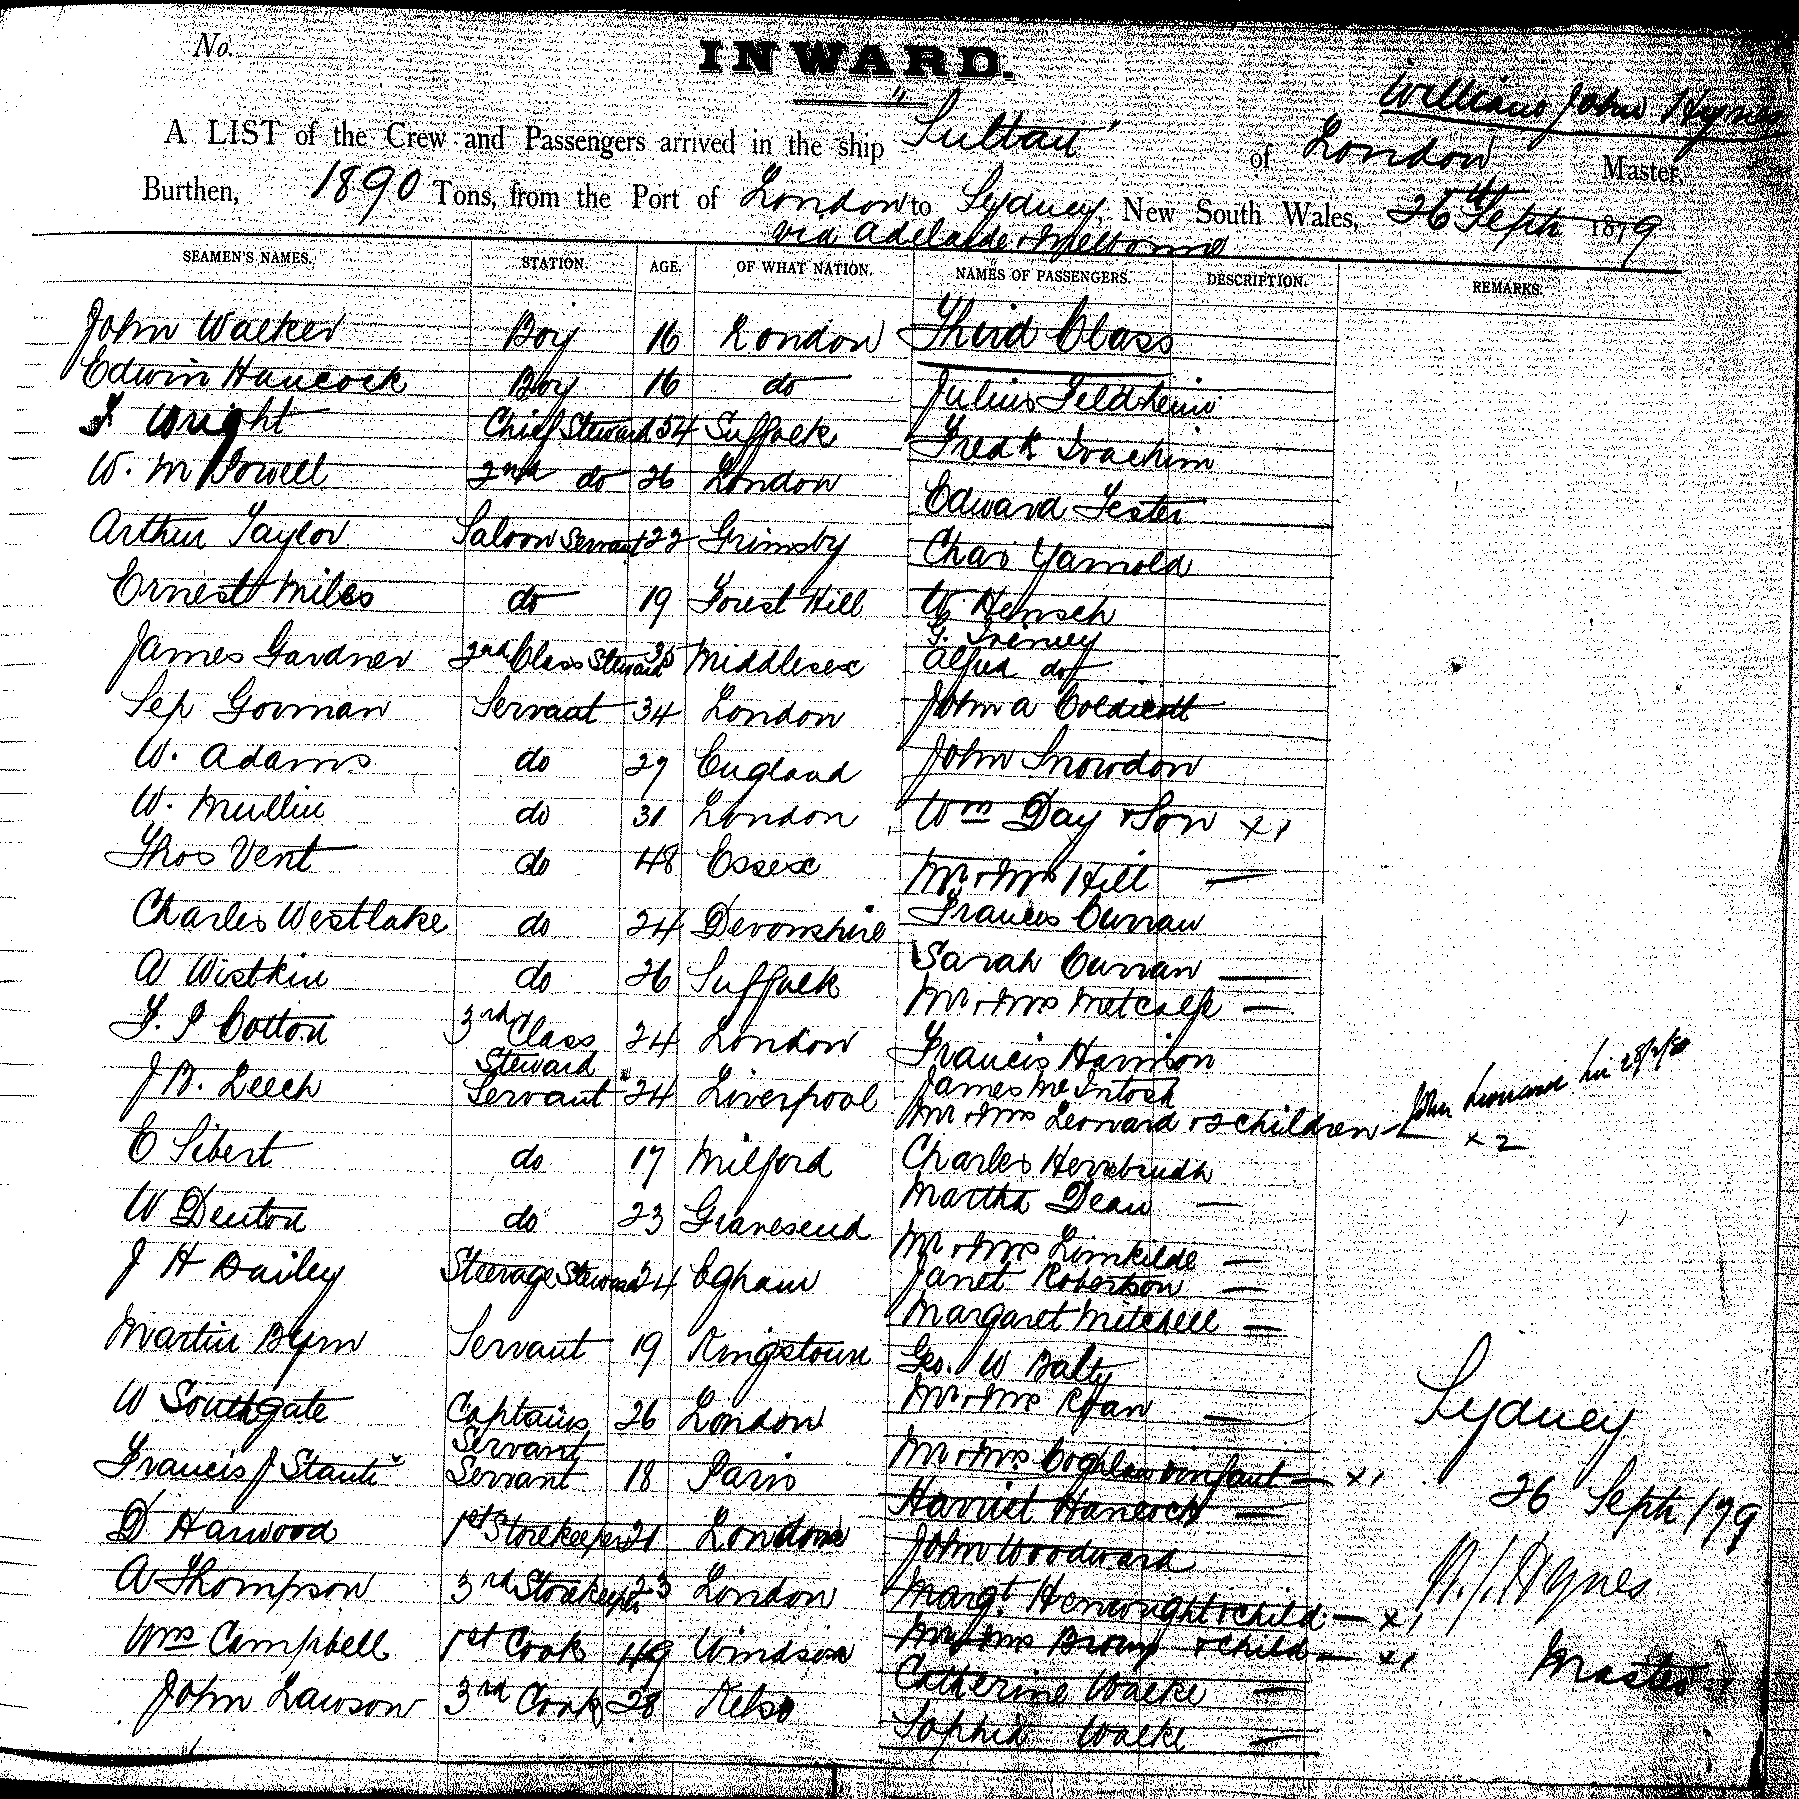 No.
INWARD.
William John Hynes
A LIST of the Crew and Passengers arrived in the ship "Sultan" of London Master,
Burthen, 1890 Tons, from the Port of London to Sydney, New South Wales, 26th Sept 1879
via Adelaide & Melbourne
SEAMEN'S NAMES. STATION. AGE. OF WHAT NATION. NAMES OF PASSENGERS. DESCRIPTION. REMARKS.
John Walker Boy 16 London Third Class
Edwin Hancock Boy 16 do Julius Feldheim
J Wright Chief Steward 34 Suffolk Fredk Joachim
W. M Powell 2nd do 26 London Edward Fester
Arthur Taylor Saloon Servant 22 Grimsby Chas Yarnold
Ernest Miles do 19 Forest Hill W. Hensch
G.
James Gardner 2nd Class Steward 25 Middlesex Alfred do
Sep Gorman Servant 34 London John A Coldicott
W. Adams do 27 England John Snowdon
W. Mullin do 31 London Wm Day & Son x1
Thos Vent do 48 Essex Mr & Mrs Hill —
Charles Westlake do 24 Devonshire Frances Curran
A Wistkin do 26 Suffolk Sarah Curran —
Mr & Mrs Metcalfe —
F. J Cotton 3rd Class Steward 24 London Francis Harrison
J B. Leech Servant 24 Liverpool James McIntosh
Mr & Mrs Leonard & 2 children — x2 John Leonard
E Sibert do 17 Milford Charles
Martha Dean —
W Denton do 23 Gravesend Mr & Mrs Limkilde —
J H Bailey Steerage Steward 24 Egham Janet Robertson —
Margaret Mitchell —
Martin Byrn Servant 19 Kingstown Geo. W Balty
W Southgate Captains Servant 26 London Mr & Mrs Ryan —
Sydney
Francis J Servant 18 Paris Mr & Mrs Coghlan & infant — x1
Harriet Hancock —
26 Sept /79
D Harwood 1st Storekeeper 21 London John Woodward
A Thompson 3rd Storekeeper 23 London Margt. Henwought & child — x1
W. J. Hynes
Wm Campbell 1st Cook 49 Windsor Mr & Mrs Brown & child — x1
Master
Catherine Walke —
John Lawson 3rd Cook 28 Kelso Sophia Walke —